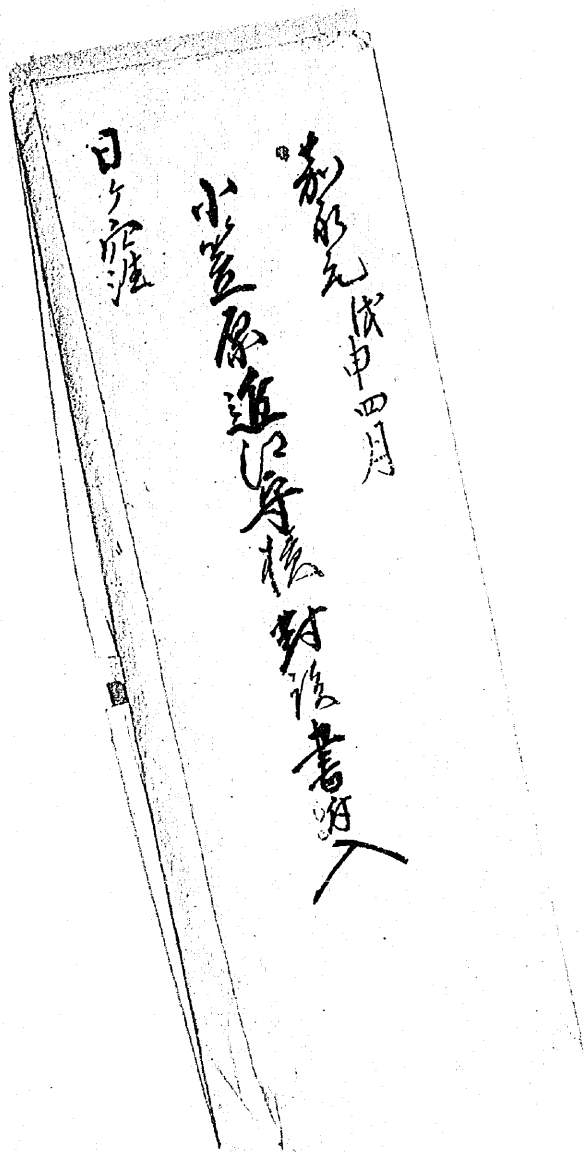 嘉永元戊申四月
小笠原近江守様對談書付入
日ケ窪